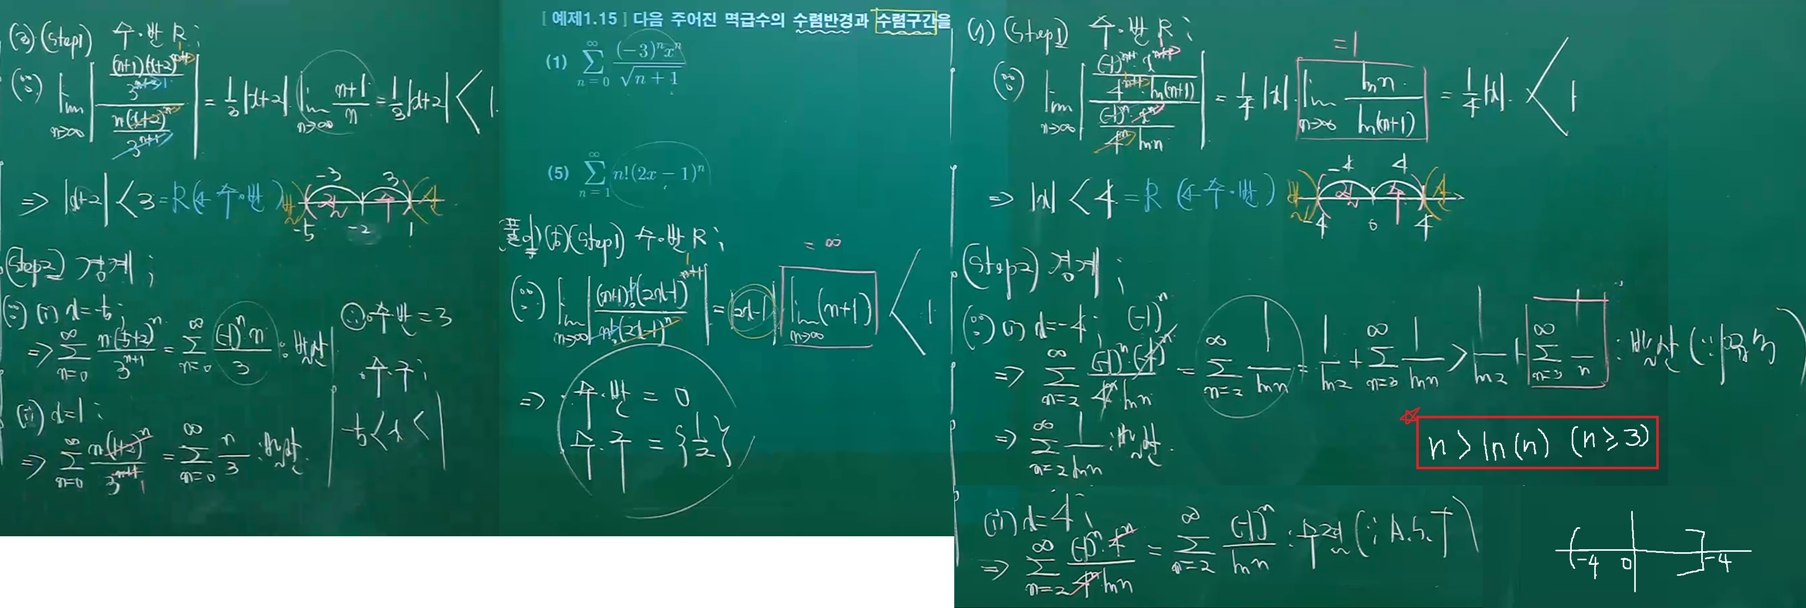 (3) (Step1) 수.반 R ;
(∵) lim n→∞ | (n+1)(x+2)^{n+1} / 3^{n+2} / n(x+2)^n / 3^{n+1} | = 1/3 |x+2| lim n→∞ (n+1)/n = 1/3 |x+2| < 1
⇒ |x+2| < 3 = R (← 수.반)
-3 3
-5 -2 1
(Step2) 경계 ;
(∵) (i) x = -5 ;
⇒ ∑_{n=0}^{∞} n(-5+2)^n / 3^{n+1} = ∑_{n=0}^{∞} (-1)^n n / 3 : 발산
(ii) x = 1 ;
⇒ ∑_{n=0}^{∞} n(1+2)^n / 3^{n+1} = ∑_{n=0}^{∞} n / 3 : 발산
∴ 수.반 = 3
수.구 ;
-5 < x <
[ 예제1.15 ] 다음 주어진 멱급수의 수렴반경과 수렴구간을
(1) ∑_{n=0}^{∞} (-3)^n x^n / √(n+1)
(5) ∑_{n=1}^{∞} n!(2x-1)^n
(풀이) (5) (Step1) 수.반 R ;
(∵) lim n→∞ | (n+1)!(2x-1)^{n+1} / n!(2x-1)^n | = |2x-1| lim n→∞ (n+1) < 1
= ∞
⇒ 수.반 = 0
수.구 = {1/2}
(Step1) 수.반 R ;
= 1
(∵) lim n→∞ | (-1)^{n+1} x^{n+1} / 4^{n+1} ln(n+1) / (-1)^n x^n / 4^n ln n | = 1/4 |x| lim n→∞ ln n / ln(n+1) = 1/4 |x| < 1
⇒ |x| < 4 = R (← 수.반)
-4 4
-4 0 4
(Step2) 경계 ;
(∵) (i) x = -4 ; (-1)^n
⇒ ∑_{n=2}^{∞} (-1)^n (-4)^n / 4^n ln n = ∑_{n=2}^{∞} 1 / ln n = 1 / ln 2 + ∑_{n=3}^{∞} 1 / ln n > 1 / ln 2 + ∑_{n=3}^{∞} 1 / n : 발산 (∵
⇒ ∑_{n=2}^{∞} 1 / ln n : 발산
n > ln(n) (n ≥ 3)
(ii) x = 4 ;
⇒ ∑_{n=2}^{∞} (-1)^n 4^n / 4^n ln n = ∑_{n=2}^{∞} (-1)^n / ln n : 수렴 (∵ A.S.T)
-4 0 -4